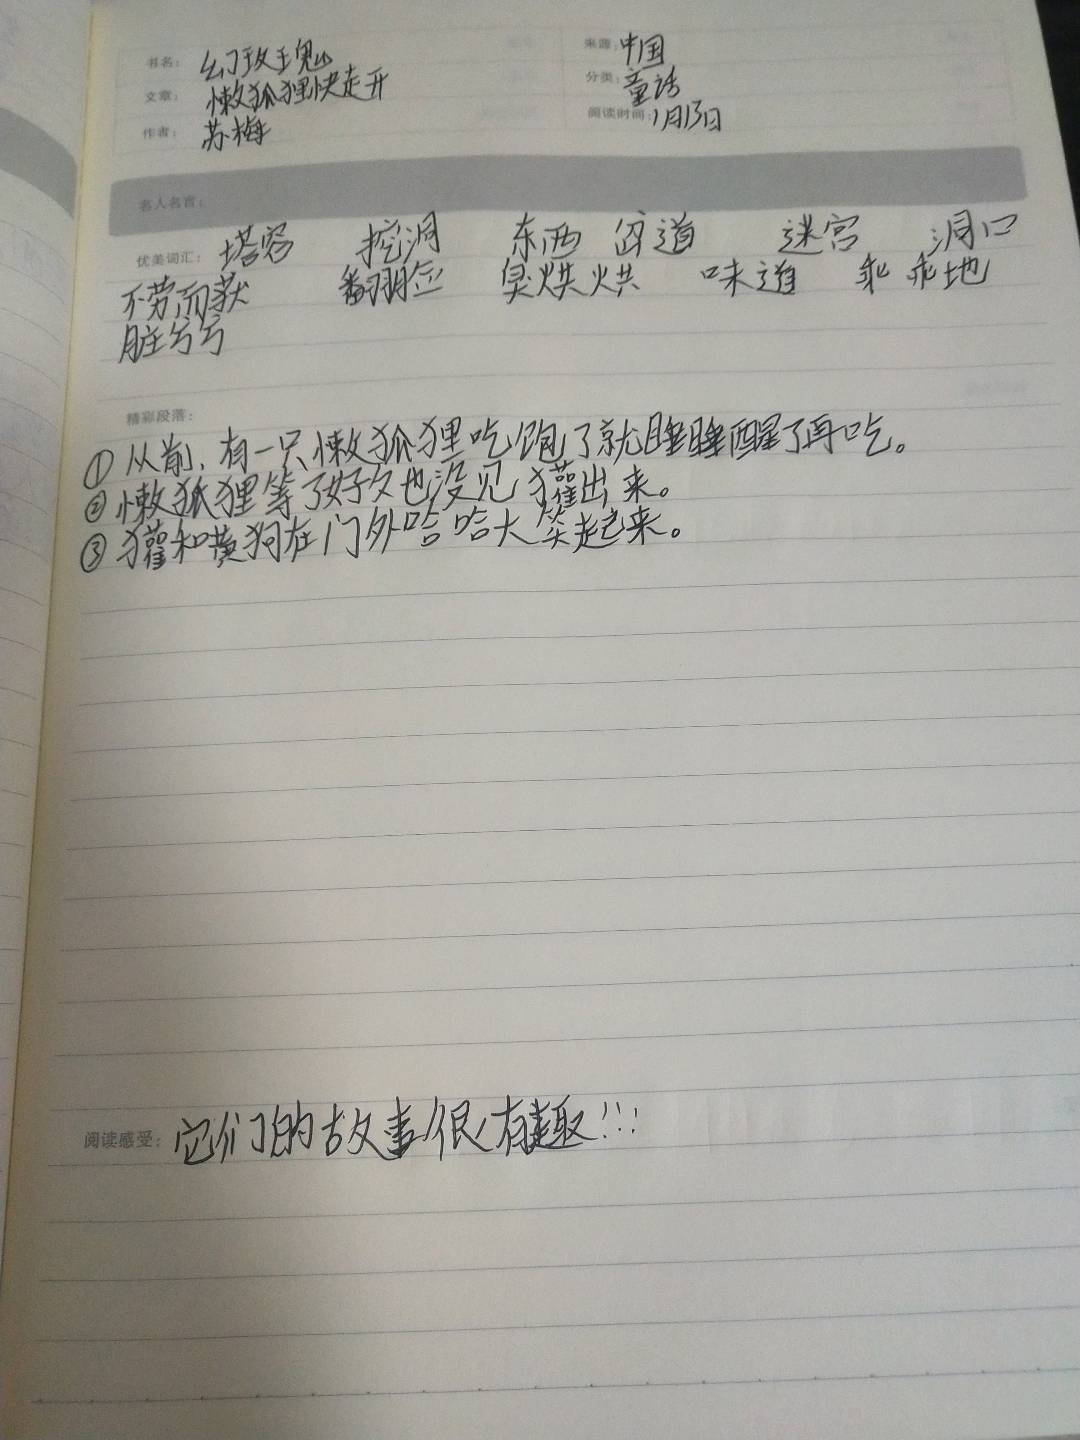 书名: 幻玫瑰
来源: 中国
文章: 懒狐狸快走开
分类: 童话
作者: 苏梅
阅读时间: 1月13日
名人名言:
优美词汇: 塔窖 挖洞 东西 窗道 迷宫 洞口
不劳而获 翻脸 臭烘烘 味道 乖乖地
脏兮兮
精彩段落:
① 从前,有一只懒狐狸吃饱了就睡睡醒了再吃。
② 懒狐狸等了好久也没见獾出来。
③ 獾和黄狗在门外哈哈大笑起来。
阅读感受: 它们的故事很有趣!!!